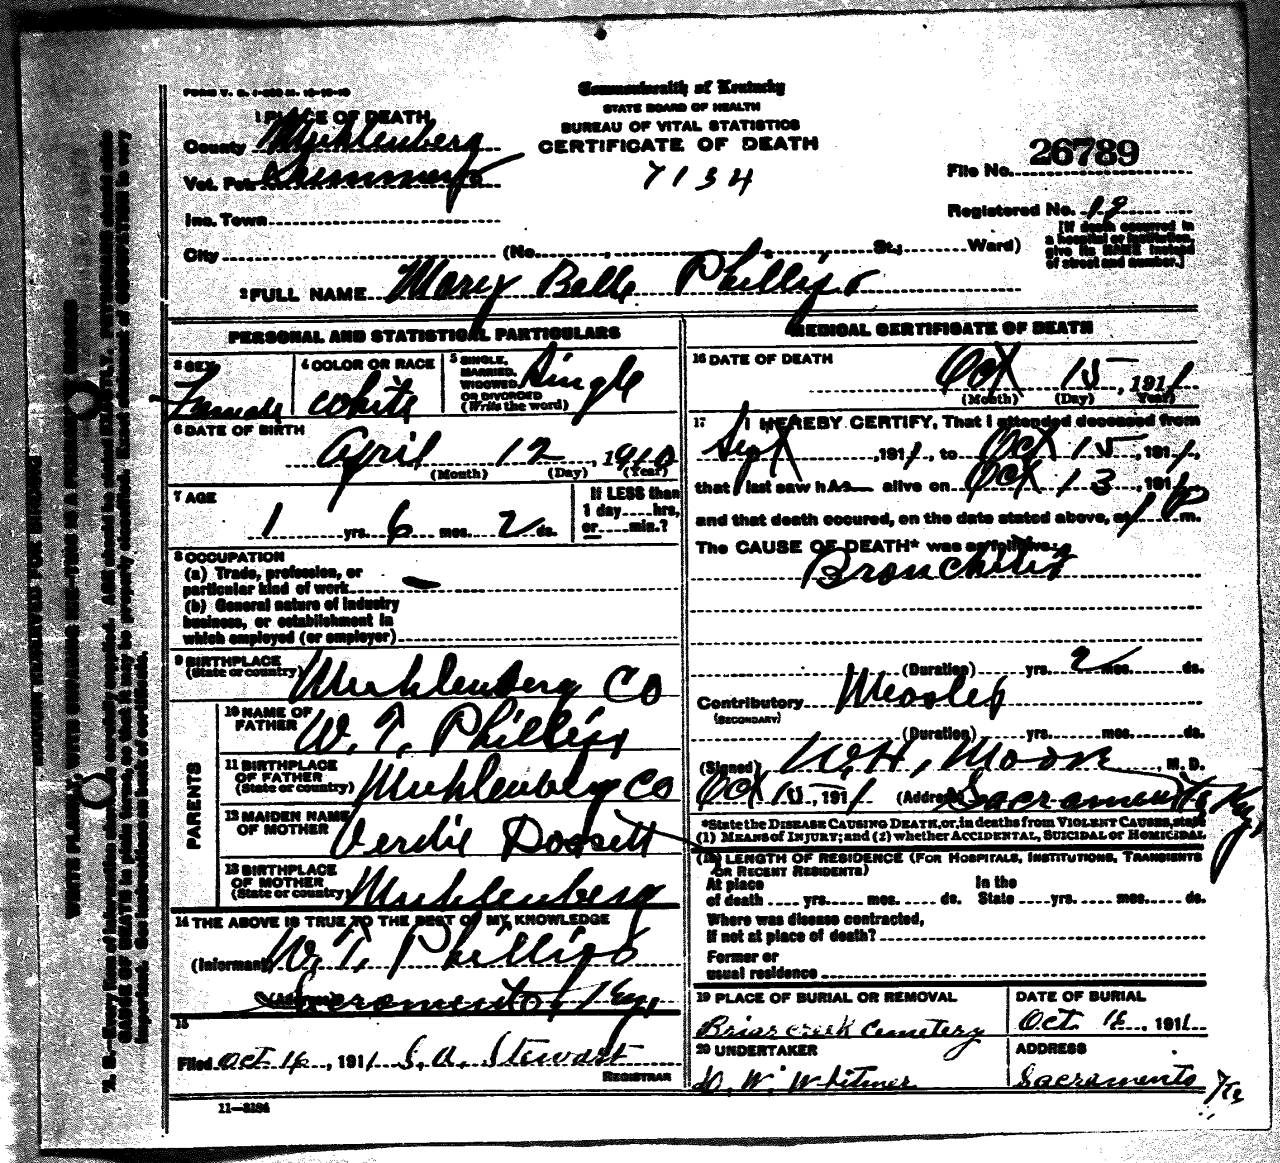 FORM V. S. 1-
Commonwealth of Kentucky
STATE BOARD OF HEALTH
BUREAU OF VITAL STATISTICS
CERTIFICATE OF DEATH
7134
1 PLACE OF DEATH
County Muhlenberg
Vot. Pct.
Inc. Town
City (No. , St.; Ward)
File No. 26789
Registered No. 19
[If death occurred in
a hospital or institution,
give its NAME instead
of street and number.]
2 FULL NAME Mary Belle Phillips
PERSONAL AND STATISTICAL PARTICULARS
3 SEX Female
4 COLOR OR RACE white
5 SINGLE, MARRIED, WIDOWED OR DIVORCED (Write the word) Single
6 DATE OF BIRTH
April 12, 1910
(Month) (Day) (Year)
7 AGE
1 yrs. 6 mos. 2 ds.
If LESS than
1 day hrs.
or min.?
8 OCCUPATION
(a) Trade, profession, or
particular kind of work —
(b) General nature of industry
business, or establishment in
which employed (or employer)
9 BIRTHPLACE
(State or country) Muhlenberg Co
PARENTS
10 NAME OF
FATHER W. T. Phillips
11 BIRTHPLACE
OF FATHER
(State or country) Muhlenberg Co
12 MAIDEN NAME
OF MOTHER Verdie Dossett
13 BIRTHPLACE
OF MOTHER
(State or country) Muhlenberg
14 THE ABOVE IS TRUE TO THE BEST OF MY KNOWLEDGE
(Informant) W. T. Phillips
Sacramento, Ky.
15
Filed Oct. 16, 1911 S. A. Stewart
REGISTRAR
11—3184
MEDICAL CERTIFICATE OF DEATH
16 DATE OF DEATH
Oct 15, 1911
(Month) (Day) Year)
17 I HEREBY CERTIFY, That I attended deceased from
Sept, 1911, to Oct 15, 1911,
that I last saw h alive on Oct 13, 1911,
and that death occured, on the date stated above, at 1 P m.
The CAUSE OF DEATH* was as follows:
Bronchitis
(Duration) yrs. 2 mos. ds.
Contributory Measles
(SECONDARY)
(Duration) yrs. mos. ds.
(Signed) W. H. Moore, M. D.
Oct 15, 1911 (Address) Sacramento Ky.
*State the DISEASE CAUSING DEATH, or, in deaths from VIOLENT CAUSES, state
(1) MEANS OF INJURY; and (2) whether ACCIDENTAL, SUICIDAL or HOMICIDAL
(18) LENGTH OF RESIDENCE (FOR HOSPITALS, INSTITUTIONS, TRANSIENTS
OR RECENT RESIDENTS)
At place In the
of death yrs. mos. ds. State yrs. mos. ds.
Where was disease contracted,
if not at place of death?
Former or
usual residence
19 PLACE OF BURIAL OR REMOVAL
Briar creek Cemetery
DATE OF BURIAL
Oct. 16, 1911
20 UNDERTAKER
W. Whitmer
ADDRESS
Sacramento Ky
MARGIN RESERVED FOR BINDING
WRITE PLAINLY, WITH UNFADING INK—THIS IS A PERMANENT RECORD
N. B.—Every item of information should be carefully supplied. AGE should be stated EXACTLY. PHYSICIANS should state
CAUSE OF DEATH in plain terms, so that it may be properly classified. Exact statement of OCCUPATION is very
important. See instructions on back of certificate.